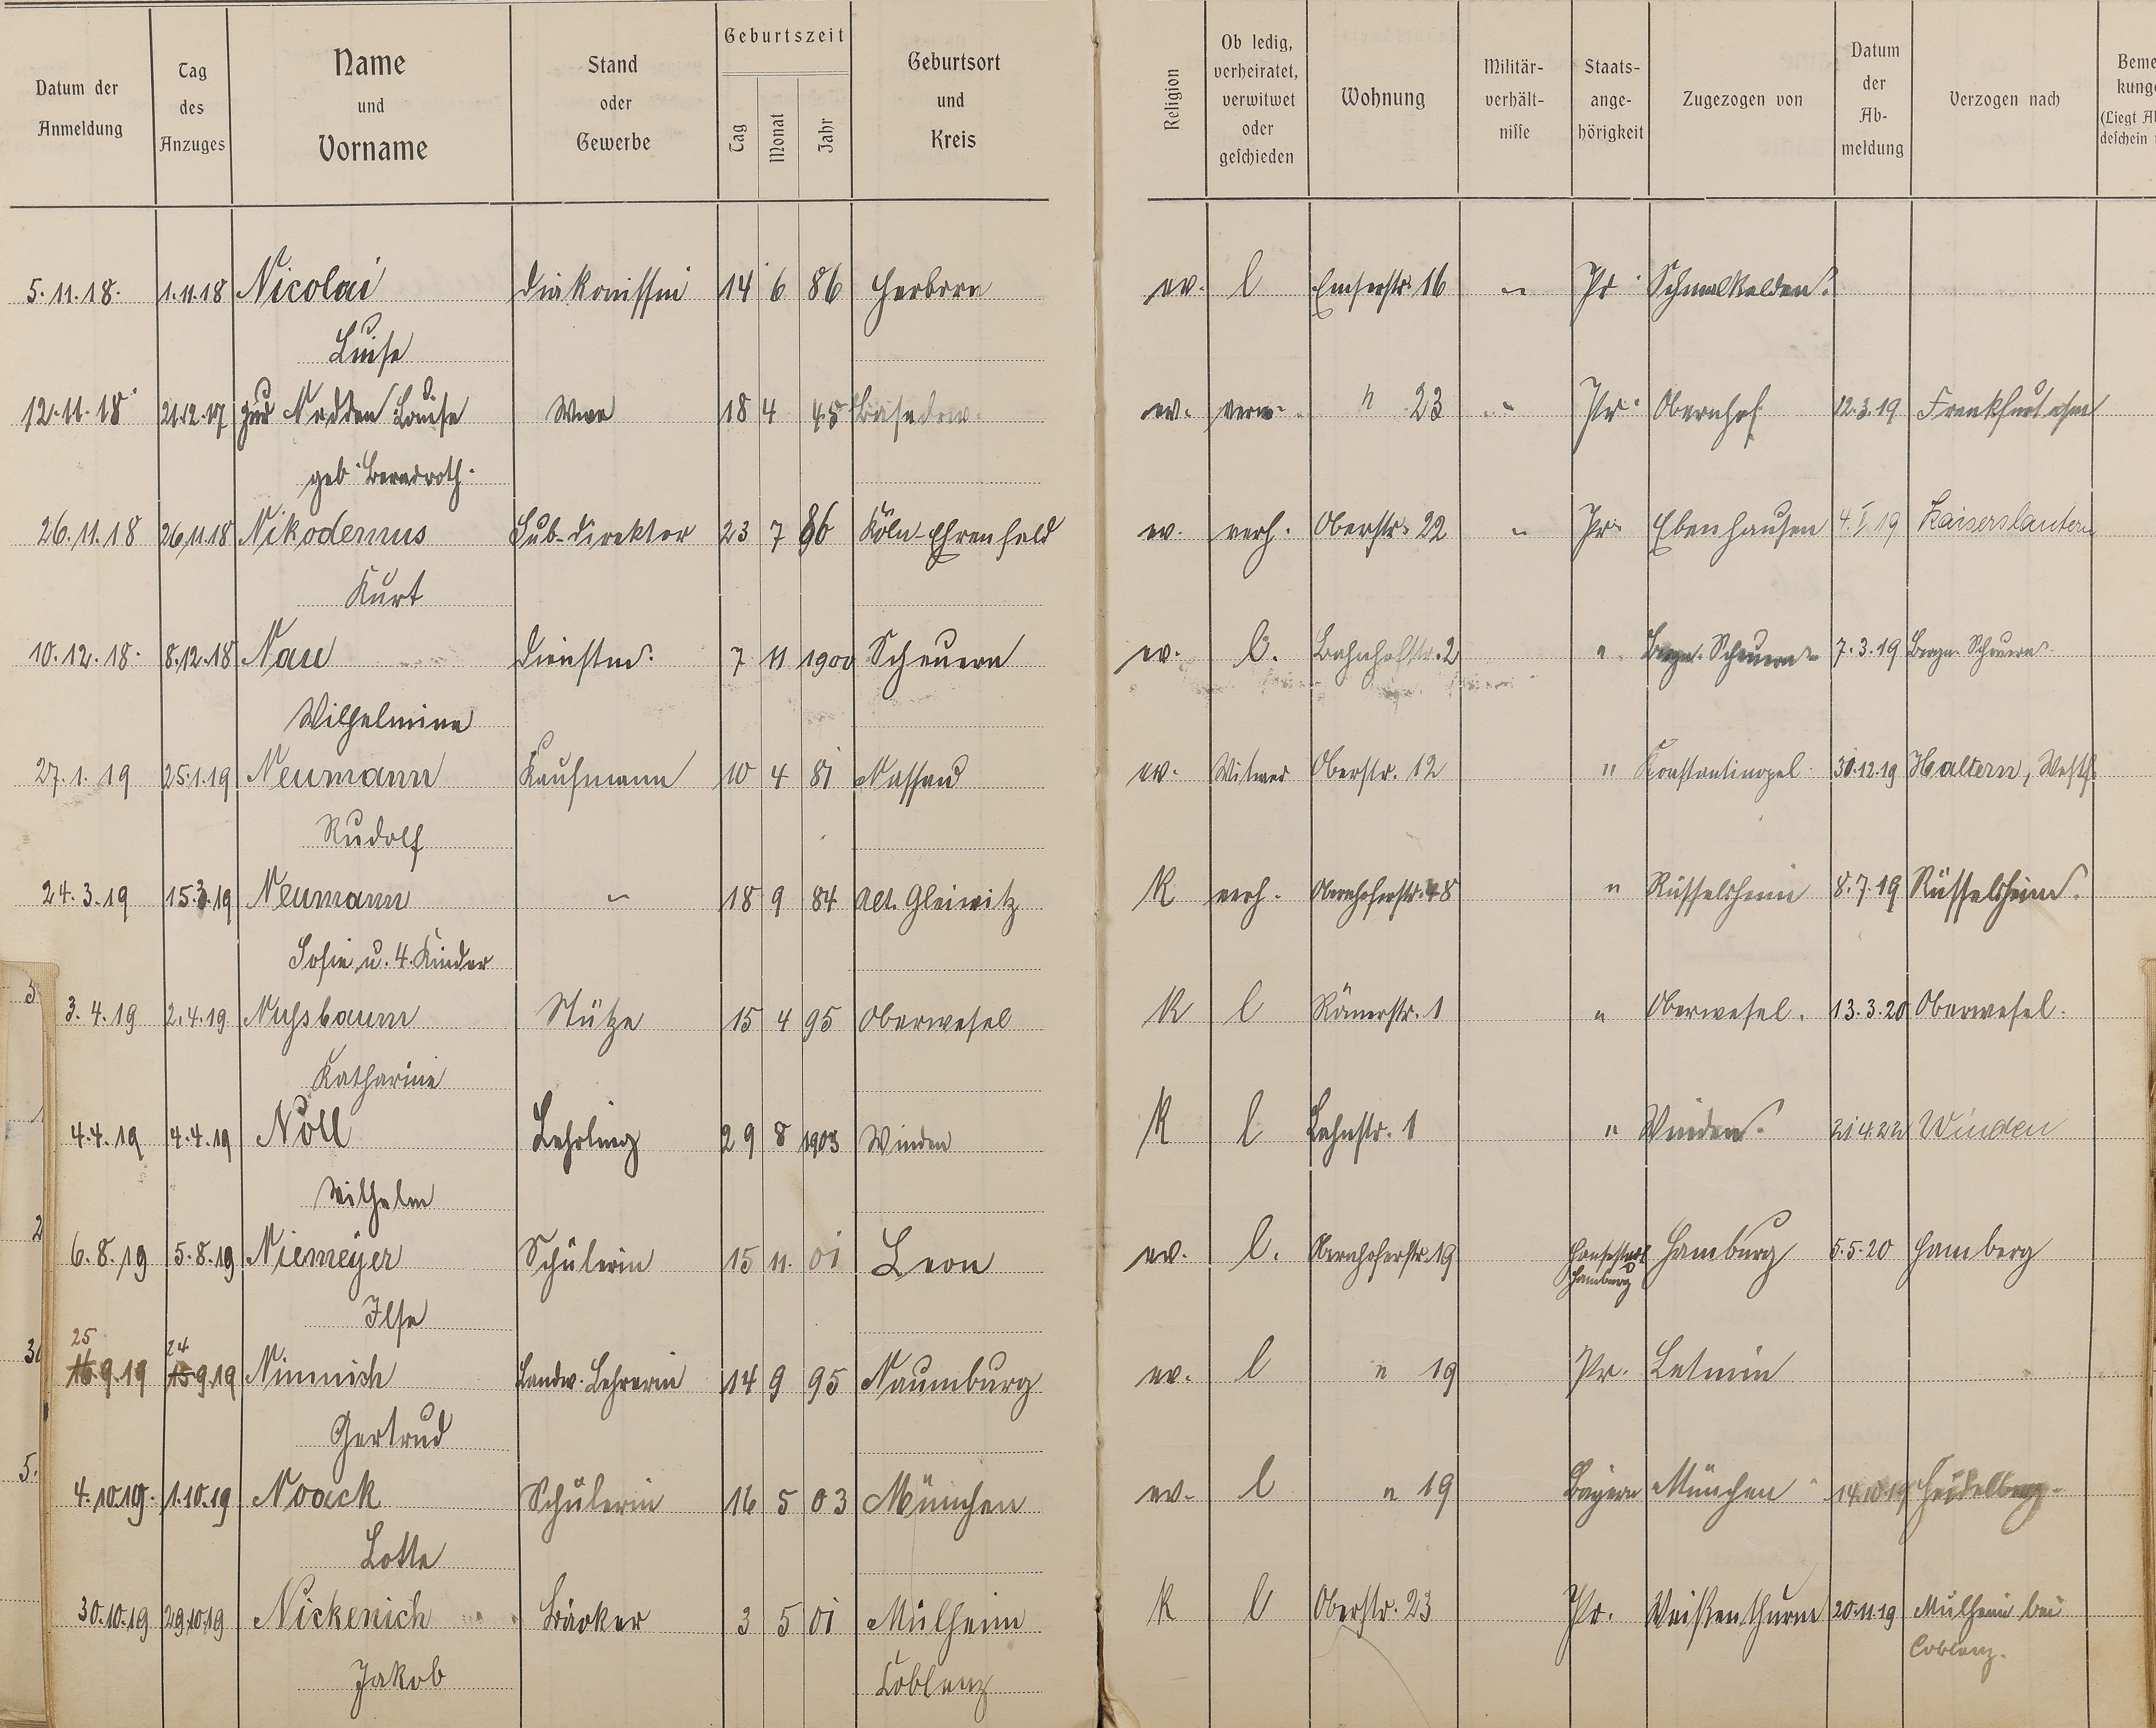 Datum der Anmeldung | Tag des Anzuges | Name und Vorname | Stand oder Gewerbe | Geburtszeit Tag Monat Jahr | Geburtsort und Kreis | Religion | Ob ledig, verheiratet, verwitwet oder geschieden | Wohnung | Militär-verhält-nisse | Staats-ange-hörigkeit | Zugezogen von | Datum der Ab-meldung | Verzogen nach
5.11.18. 1.11.18 Nicolai Diakonissin 14 6 86 Herborn ev. l Emserstr. 16 " Pr Schmalkalden.
Luise
12.11.18 21.12.17 zur Nedden Louise Wwe 18 4 45 Basedow. ev. verw. " 23 " Pr. Obernhof 12.3.19 Frankfurt a/m
geb.
26.11.18 26.11.18 Nikodemus Sub-Direktor 23 7 86 Köln-Ehrenfeld ev. verh. Oberstr. 22 " Pr. Ebenhausen 4.I.19 Kaiserslautern
Kurt
10.12.18. 8.12.18 Nau Dienstm. 7 11 1900 Scheuern ev. l. Bahnhofstr. 2 " Bergn. Scheuern 7.3.19 Bergn. Scheuern
Wilhelmine
27.1.19 25.1.19 Neumann Kaufmann 10 4 81 Nassau ev. Witwer Oberstr. 12 " Konstantinopel 30.12.19 Haltern, Westf.
Rudolf
24.3.19 15.3.19 Neumann – 18 9 84 Alt. Gleiwitz K verh. Obernhoferstr. 48 " Rüsselsheim 8.7.19 Rüsselsheim.
Sofie u. 4 Kinder
3.4.19 2.4.19 Nussbaum Stütze 15 4 95 Oberwesel K l Römerstr. 1 " Oberwesel. 13.3.20 Oberwesel.
Katharine
4.4.19 4.4.19 Nöll Lehrling 29 8 1903 Winden K l Lahnstr. 1 " Winden. 21.4.22 Winden
Wilhelm
6.8.19 5.8.19 Niemeyer Schülerin 15 11. 01 Leon ev. l. Obernhoferstr. 19 Hansestadt Hamburg 5.5.20 Hamberg
Hamburg
Ilse
25 24
16.9.19 15.9.19 Nimnich Landw. Lehrerin 14 9 95 Naumburg ev. l " 19 Pr. Letmin
Gertrud
4.10.19. 1.10.19 Noack Schülerin 16 5 03 München ev. l " 19 Bayern München 14.10.19 Heidelberg.
Lotte
30.10.19 29.10.19 Nickenich Bäcker 3 5 01 Mülheim K l Oberstr. 23 Pr. Weißenthurm 20.11.19 Mülheim bei
Coblenz.
Jakob Coblenz